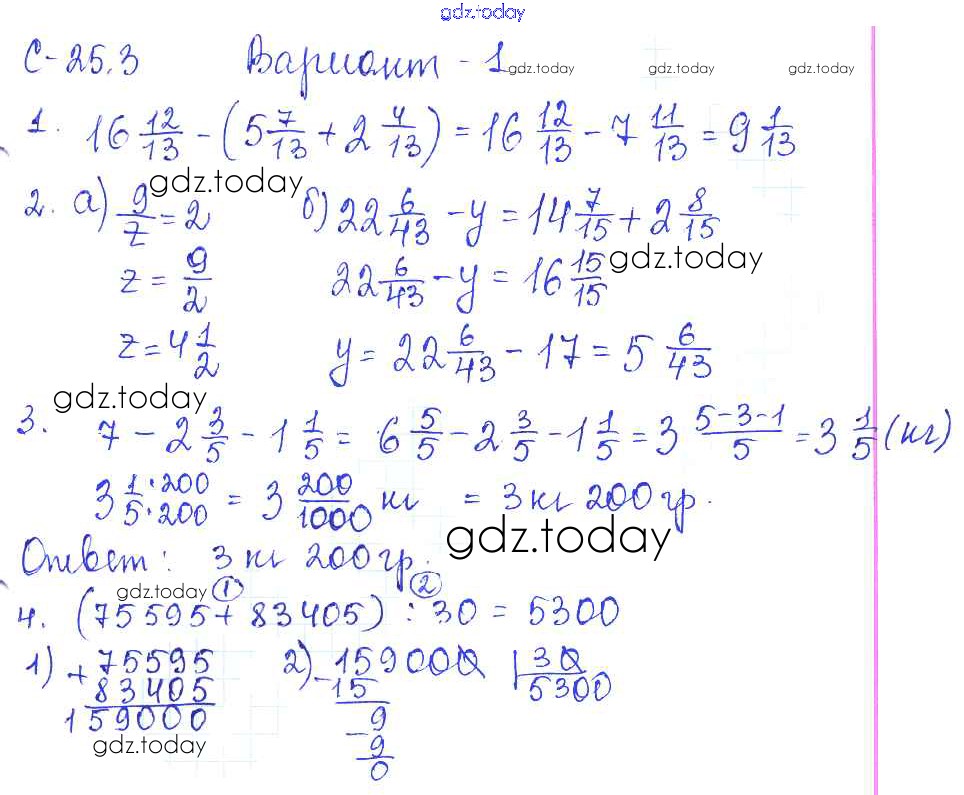 gdz.today
С-25.3 Вариант - 1 gdz.today gdz.today gdz.today
1. 16 12/13 - (5 7/13 + 2 4/13) = 16 12/13 - 7 11/13 = 9 1/13
gdz.today
2. а) 9/z = 2 б) 22 6/43 - y = 14 7/15 + 2 8/15
z = 9/2 22 6/43 - y = 16 15/15 gdz.today
z = 4 1/2 y = 22 6/43 - 17 = 5 6/43
gdz.today
3. 7 - 2 3/5 - 1 1/5 = 6 5/5 - 2 3/5 - 1 1/5 = 3 5-3-1/5 = 3 1/5 (кг)
3 1·200/5·200 = 3 200/1000 кг = 3 кг 200 гр.
gdz.today
Ответ: 3 кг 200 гр.
gdz.today 1 2
4. (75595 + 83405) : 30 = 5300
1) + 75595 2) - 159000 | 30
83405 15 5300
159000 9
gdz.today - 9
0